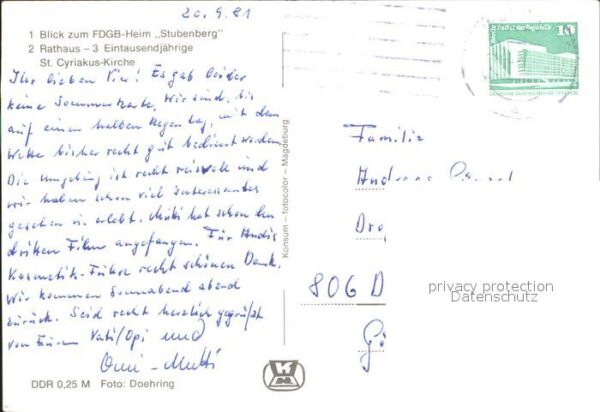 20.9.81
1 Blick zum FDGB-Heim „Stubenberg"
2 Rathaus – 3 Eintausendjährige
St. Cyriakus-Kirche
Ihr lieben Vier! Es gab leider
keine Sommerkarte, wir sind, bis
auf einen halben Regentag, mit dem
Wetter bisher recht gut bedient worden.
Die Umgebung ist recht reizvoll und
wir haben schon viel Interessantes
gesehen u. erlebt. Mutti hat schon den
dritten Film angefangen. Für Andis
Kosmetik-Führe recht schönen Dank.
Wir kommen Sonnabend abend
zurück. Seid recht herzlich gegrüßt
von Euren Vati/Opi und
Omi-Mutti
DDR 0,25 M Foto: Doehring
Konsum – fotocolor – Magdeburg
10
Palast der Republik
Familie
Andreas
806 D
privacy protection
Datenschutz